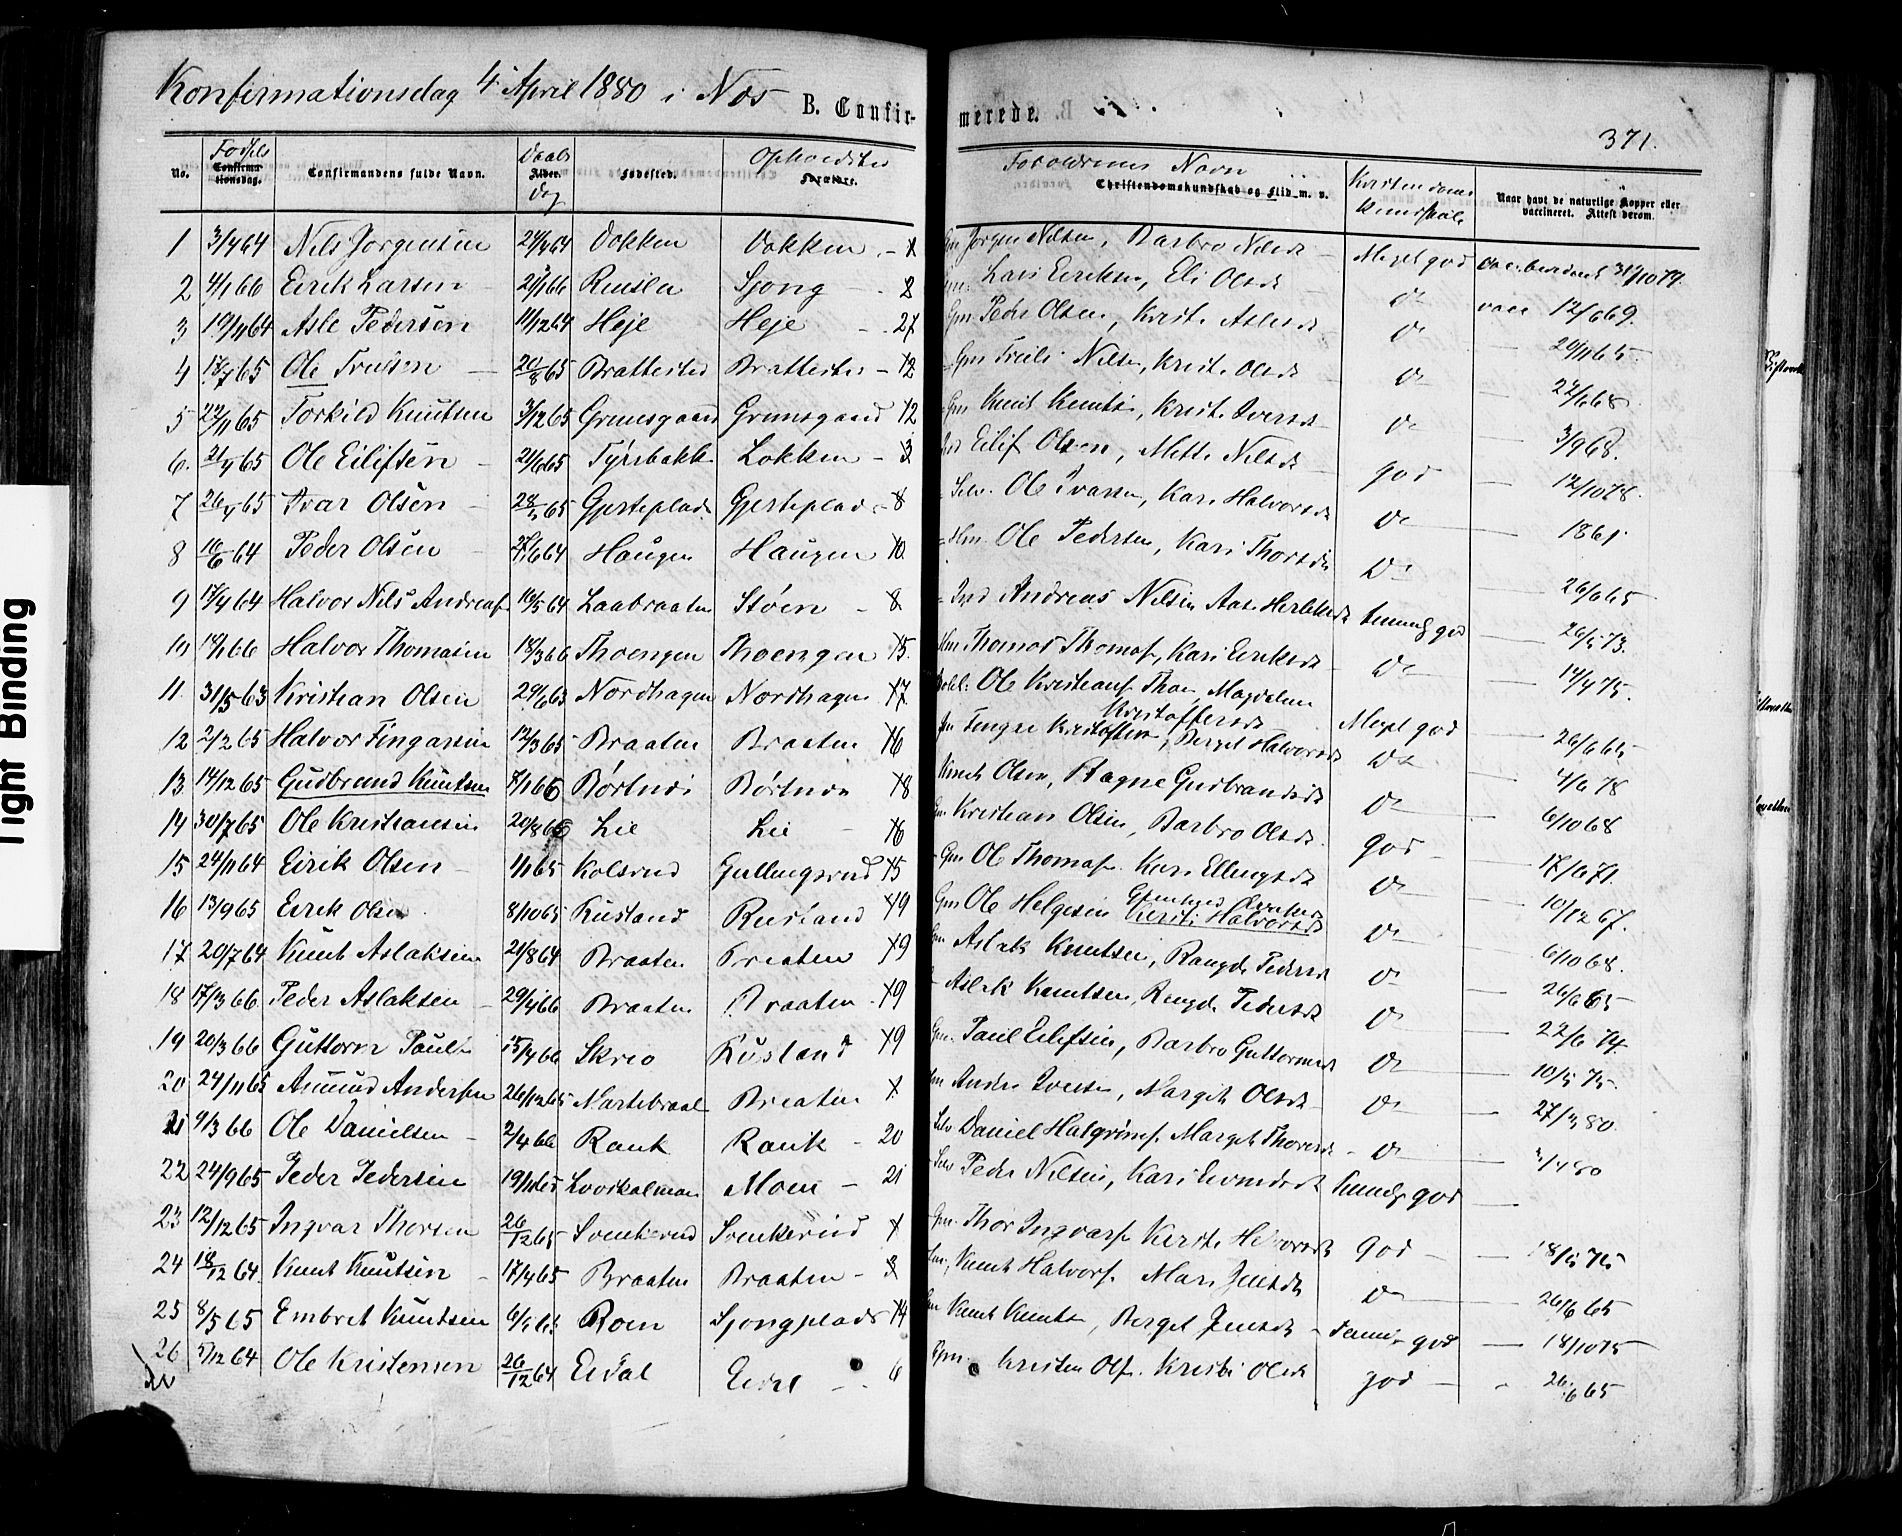 Konfirmationsdag 4 April 1880 i Næs
B. Confir-
merede.
371.
No. Fødsels Confirmationsdag. Confirmandens fulde Navn. Daabs Alder. Dag Fødested. Opholdssted Forældre.
Forældrenes Navn Christendomskundskab og Flid m. v. Kristendoms kundskab Naar havt de naturlige Kopper eller vaccineret. Attest derom.
1 3/4 64 Nils Jørgensen 24/4 64 Dokken Dokken Jørgen Nilsen, Barbro Nilsd. Meget god
2 4/1 66 Eirik Larsen 21/1 66 Rusla Sjong 8 Lars Eeriksen, Eli Olsd. do vacc 12/6 69.
3 19/11 64 Asle Pedersen 11/12 64 Heje Heje 27 Gm Peder Olsen, Krist. Aslesd. do
4 17/7 65 Ole Trulsen 20/8 65 Brattested Brattested 12 Gm Trulls Nilsen, Krist. Olsd. do
5 22/11 65 Torkild Knutsen 3/12 65 Grimsgaard Grimsgaard 12 Gm Knut Knuts, Krist. Iversd. do 3/9 68.
6. 21/4 65 Ole Eilifsen 21/6 65 Tyribakk Løkken 3 Eilif Olsen, Mette Nilsd. god 12/10 78.
7 26/4 65 Ivar Olsen 28/5 65 Gjerteplads Gjerteplads 8 Selv. Ole Ivarsen, Kari Halvorsd. do 1861
8 10/6 64 Peder Olsen 26/6 64 Haugen Haugen 10. Hm. Ole Pedersen, Kari Thorsd. do 26/6 65
9 17/4 64 Halvor Nils Andreas 16/5 64 Laabraaten Støen 8 Ind Andreas Nilsen Aas. Herleksd. temmelig god 26/5 73.
10 14/1 66 Halvor Thomasen 18/3 66 Thoengen Thoengen 15. Hm Thomas Thomas, Kari Eeriksd. do 14/4 75.
11. 31/5 63 Kristian Olsen 29/6 63 Nordhagen Nordhagen 17. Ole Kristians. Thon, Magdalene Kristoffersd. Meget god 26/6 65
12 2/2 65 Halvor Fingarsen 12/3 65 Braaten Braaten 16 Fingar Kristoffersen, Berget Halvorsd. do 4/6 78
13 14/12 65 Gudbrand Knutsen 7/1 66 Børtnes Børtnes 18 Knut Olsen, Ragne Gudbrandsd. do 6/10 68
14 30/7 65 Ole Kristiansen 20/8 65 Lie Lie 16 Gm Kristian Olsen, Barbro Olsd. god 17/6 71.
15 24/11 64 Eirik Olsen 1/1 65 Kolsrud Gullingsrud 15 Gm Ole Thomas. Kari Ellingsd. do 10/12 67.
16 13/9 65 Eerik Olsen 8/10 65 Rustand Rustand 19 Gm Ole Helgesen Kersti Halvorsd. do 6/10 68.
17 20/7 64 Knut Aslaksen 21/8 64 Braaten Braaten 19 Gm Aslak Knutsen, Rangd. Pedersd. do 26/6 65
18 17/3 66 Peder Aslaksen 29/4 66 Braaten Braaten 19 Aslak Knutsen, Rangd. Pedersd. do 22/6 74.
19 20/3 66 Guttorm Pauls. 15/4 66 Skreo Rustand 19 Gm. Paul Eilifsen, Barbro Guttormsd. do 10/5 75.
20 24/11 65 Asmund Andersen 26/12 65 Martebraat Braaten Anders Iversen, Margit Olsd. do 27/3 80.
21 9/3 66 Ole Danielsen 2/4 66 Rank Rank 20 Selv Daniel Halgrims. Margit Thoresd. do 3/4 80
22 24/9 65 Peder Pedersen 19/11 65 Moen 21 Selv Peder Nilsen, Kari temmelig god
23 12/12 65 Ingvar Thorsen 26/12 65 Svenkerud Svenkerud Gm. Thor Ingvars. Kersti god 18/5 75
24 18/12 64 Knut Knutsen 17/4 65 Braaten Braaten 3 Knut Halvors. Mari Jensd. do 26/6 65
25 8/5 65 Embret Knutsen Roen Sjongplads 14 Gm Knut Knuts, Berget Jensd. temmelig god 18/10 75
26 5/12 64 Ole Kristensen 26/12 64 Eidal Eidal 6 Gm. Kristen Ols. Kristi Olsd. god 26/6 65
Tight Binding